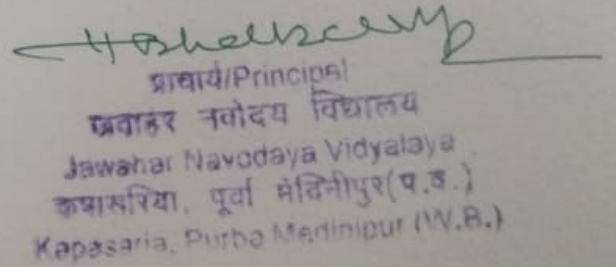 प्राचार्य/Principal
जवाहर नवोदय विद्यालय
Jawahar Navodaya Vidyalaya
कपासरिया, पूर्वा मेदिनीपुर (प.ब.)
Kapasaria, Purba Medinipur (W.B.)